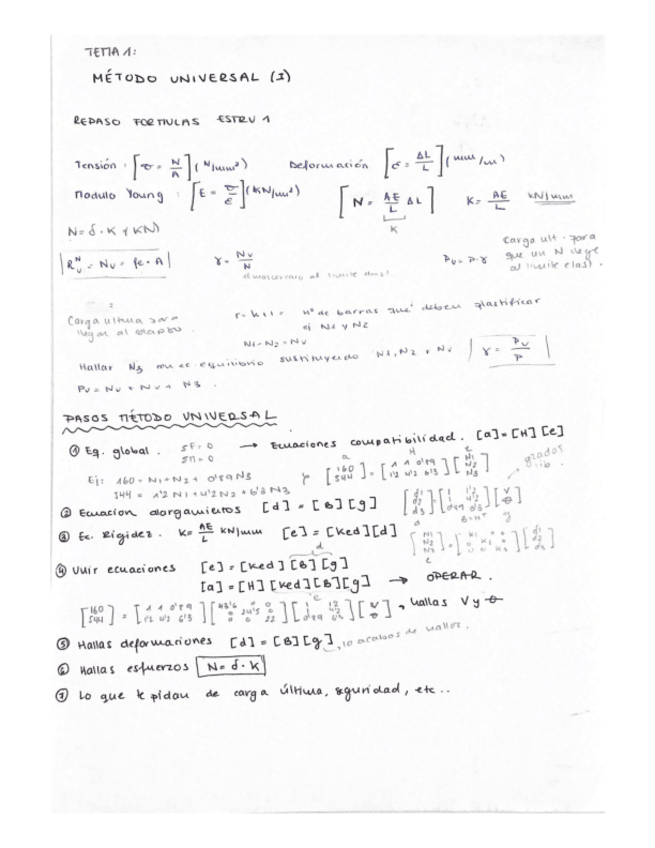 TEMA 1:
MÉTODO UNIVERSAL (I)
REPASO FORMULAS ESTRU 1
Tensión : [σ = N/A] (N/mm²) Deformación [ε = ΔL/L] (mm/m)
Modulo Young : [E = σ/ε] (KN/mm²) [N = AE/L ΔL] K = AE/L kN/mm
K
N = δ · K (KN)
R_U^N = N_U = fe · A γ = N_U/N P_U = P·γ Carga ult. para
que un N llegue
al límite elast.
Carga ultima para
llegar al
r = h+1 = nº de barras que deben plastificar
ej N1 y N2
N1 = N2 = N_U
Hallar N3 en ec equilibrio sustituyendo N1, N2 x N_U γ = P_U/P
P_U = N_U + N_U + N3 .
PASOS MÉTODO UNIVERSAL
① Eq. global . ΣF=0 ΣM=0 → Ecuaciones compatibilidad. [a] = [H] [e]
Ej: 160 = N1 + N2 + 0'89 N3
544 = 1'2 N1 + 4'2 N2 + 6'3 N3
a H e
[160 544] = [1 1 0'89 1'2 4'2 6'3] [N1 N2 N3]
grados lib.
② Ecuacion alargamientos [d] = [B] [g] [d1 d2 d3] = [1 1'2 1 4'2 0'89 6'3] [V θ]
d B=Hᵀ g
③ Ec. Rigidez. K = AE/L kN/mm [e] = [Ked] [d] [N1 N2 N3] = [K1 0 0 0 K2 0 0 0 K3] [d1 d2 d3]
e
④ Unir ecuaciones [e] = [Ked] [B] [g]
d
[a] = [H] [Ked] [B] [g] → OPERAR.
e
[160 544] = [1 1 0'89 1'2 4'2 6'3] [V θ] , hallas V y θ
⑤ Hallas deformaciones [d] = [B] [g] , lo acabas de hallar.
⑥ Hallas esfuerzos N = δ · K
⑦ Lo que te pidan de carga última, seguridad, etc..